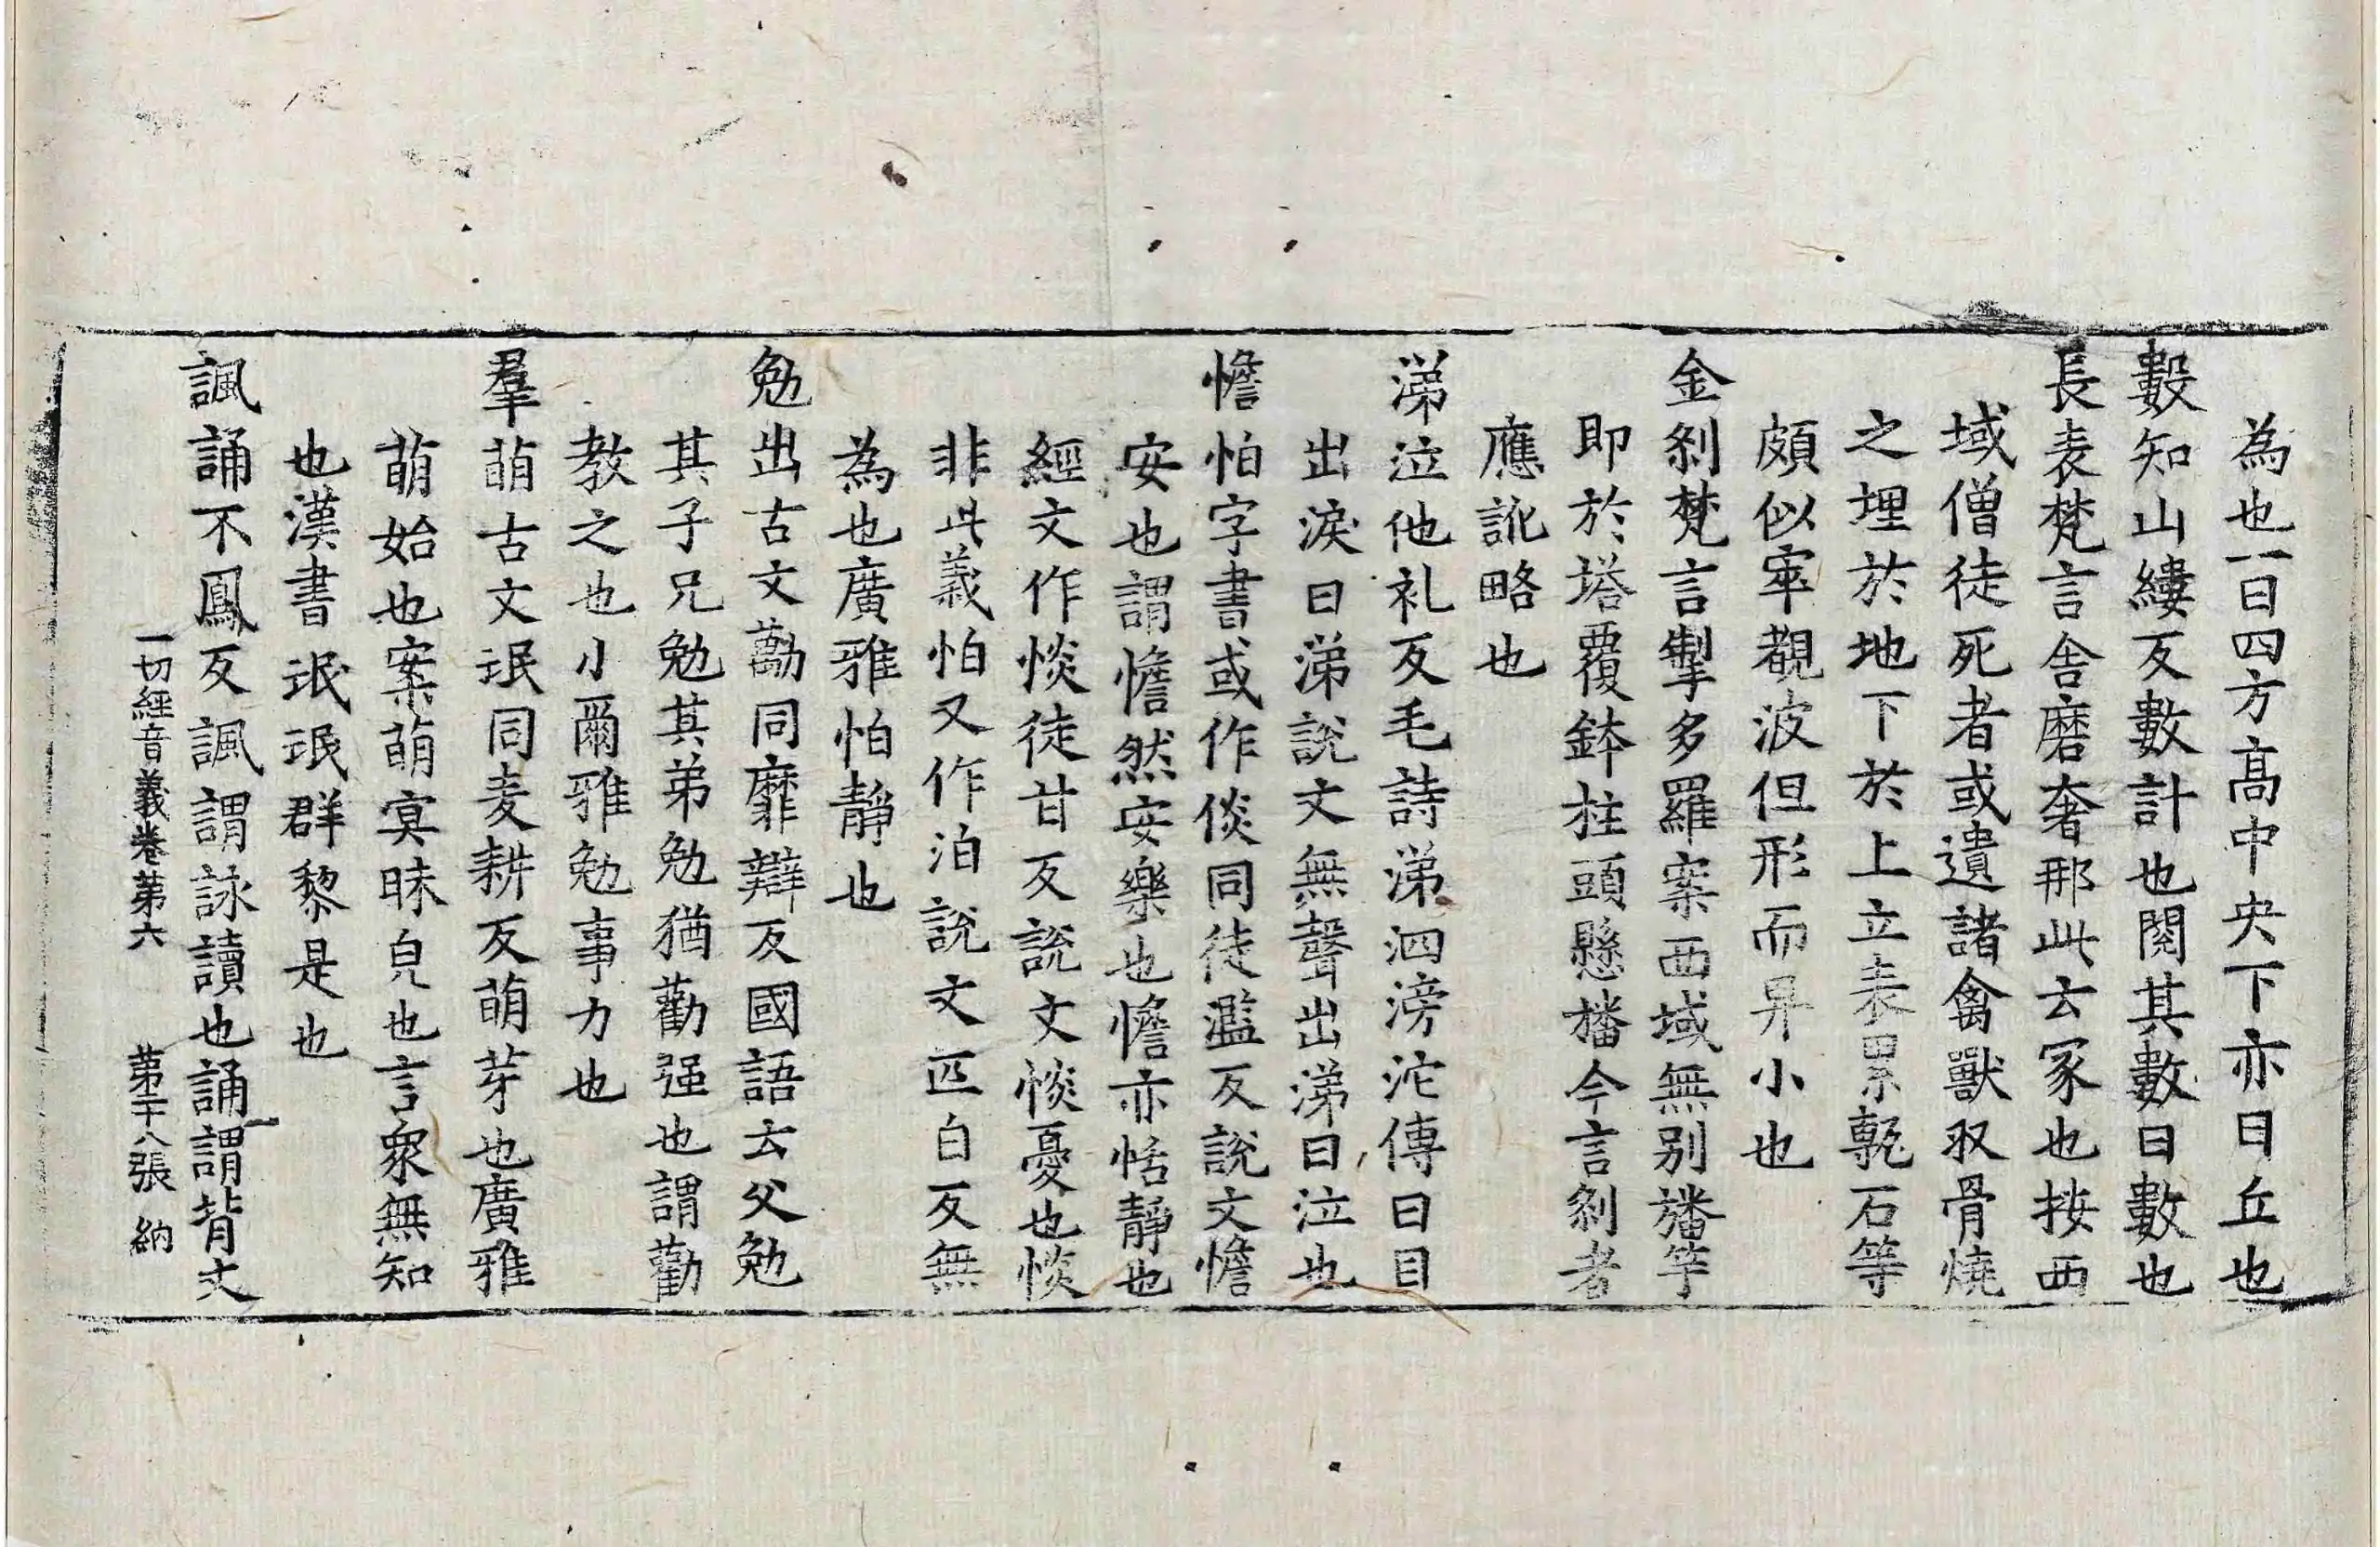 為也一曰四方高中央下亦曰丘也
數知山縷反數數計也閱其數曰數也
長表梵言舍磨奢那此云冢也按西
域僧徒死者或遺諸禽獸収骨燒
之埋於地下於上立表累甎石等
頗似窣覩波但形而昇小也
金剎梵言掣多羅案西域無別旛竿
即於塔覆鉢柱頭懸旛今言剎者
應訛略也
涕泣他礼反毛詩涕泗滂沱傳曰目
出淚曰涕說文無聲出涕曰泣也
憺怕字書或作倓同徒濫反說文憺
安也謂憺然安樂也憺亦恬靜也
經文作惔徒甘反說文惔憂也惔
非此義怕又作泊說文匹白反無
為也廣雅怕靜也
勉出古文勱同靡辯反國語云父勉
其子兄勉其弟勉猶勸强也謂勸
教之也小爾雅勉事力也
羣萌古文氓同麦耕反萌芽也廣雅
萌始也案萌冥昧皃也言衆無知
也漢書氓氓群黎是也
諷誦不鳳反諷謂詠讀也誦謂背文
一切經音義卷苐六 苐二十八張 納